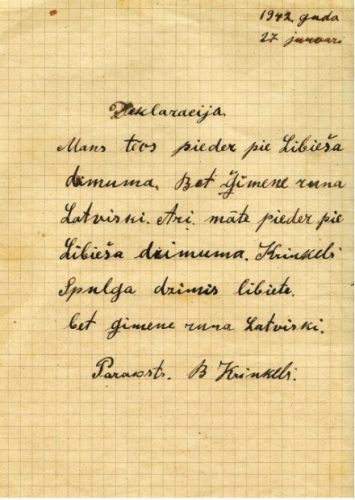 1942. gada
27 januari
Deklaracija.
Mans tevs pieder pie Libieša
dzimuma. Bet ģimene runa
Latviski. Arī māte pieder pie
Libieša dzimuma. Krinkels
Spulga dzimis libiete.
bet ģimene runa Latviski.
Paraksts. B Krinkels.